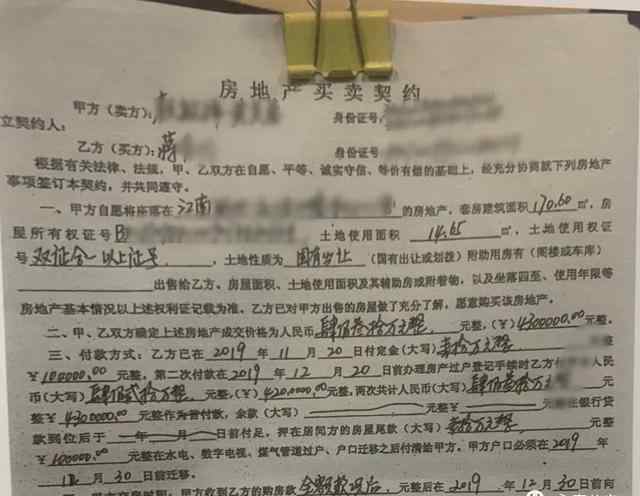 房地产买卖契约
甲方（卖方）： 身份证号：
立契约人：
乙方（买方）：蒋 身份证号
根据有关法律、法规，甲、乙双方在自愿、平等、诚实守信、等价有偿的基础上，经充分协商就下列房地产
事项签订本契约，并共同遵守。
一、甲方自愿将座落在江南 的房地产，套房建筑面积170.60㎡，房
屋所有权证号B 土地使用面积 14.65 ㎡，土地使用权证
号 双证合一以上证号 ，土地性质为 国有出让 （国有出让或划拨）附助用房有（阁楼或车库）
出售给乙方。房屋面积、土地使用面积及其辅助房或附着物，以及坐落四至、使用年限等
房地产基本情况以上述权利证记载为准。乙方已对甲方出售的房屋做了充分了解，愿意购买该房地产。
二、甲、乙双方确定上述房地产成交价格为人民币肆佰叁拾万元整，元整，（￥）4300000.00元整。
三、付款方式：乙方已在 2019 年 11 月 20 日付定金（大写）壹拾万元整
￥100000.00元整，第二次付款在 2019 年 12 月 20 日前办理房产过户登记手续时乙方付 人民
币（大写）肆佰贰拾万整，元整，（￥）4200000.00元整，两次共计人民币（大写）肆佰叁拾万元
整￥4300000.00 元整作为首付款，余款（大写） 元整￥ 元整 银行贷
款到位后于 年 月 日前付足，押在居间方的房屋尾款（大写）壹拾万元整
￥100000.00元整在水电、数字电视、煤气管道过户、户口迁移之后付清给甲方。甲方户口必须在2019年
12月30日前迁移。
甲方收到乙方的购房款全额款项后，元整后在 2019 年 12 月 30 日前向